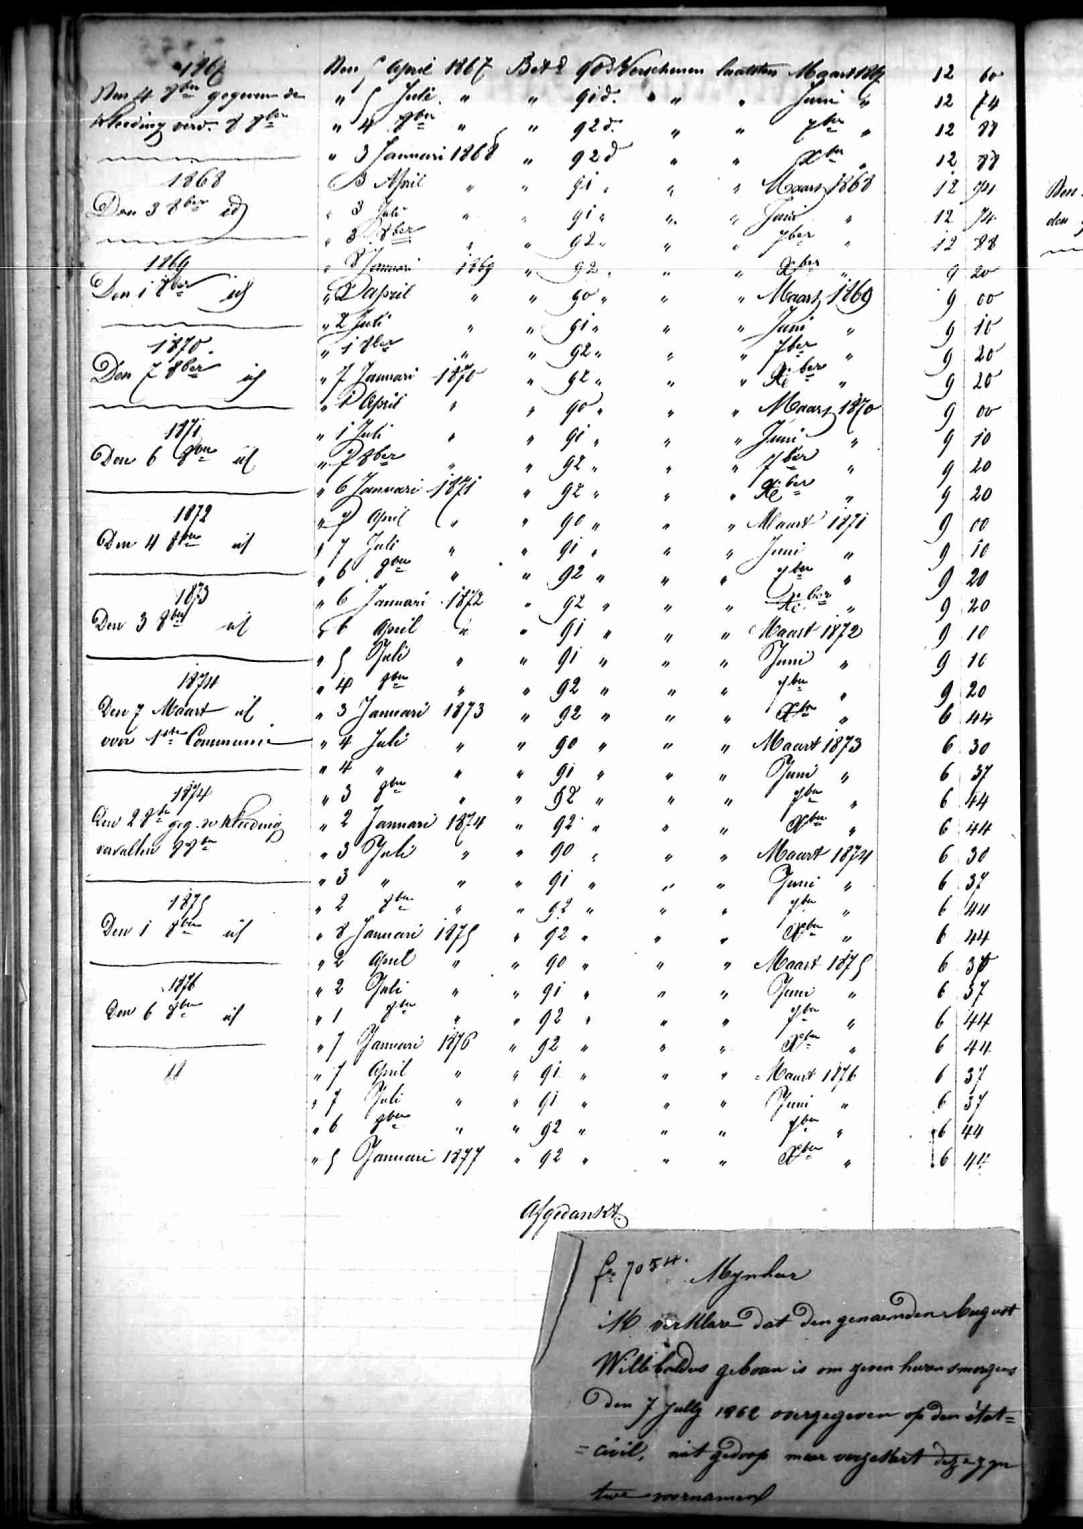 1867
Den 4 8ber gegeven de
kleeding verv. 8 8ber
1868
Den 3 8ber id
1869
Den 1 8ber id
1870.
Den 7 8ber id
1871
Den 6 8ber id
1872
Den 4 8ber id
1873
Den 3 8ber id
1874
Den 7 Maart id
voor 1ste Communie
1874
Den 2 8ber geg. de kleeding
1875
Den 1 8ber id
1876
Den 6 8ber id
Den 5 April 1867 Betd 90 d Verschenen laatsten Maart 1867 12 60
" 5 Juli " " 91 d. " " " Juni " 12 74
" 4 8ber " " 92 d. " " 7ber " 12 88
" 3 Januari 1868 " 92 d " " Xber " 12 88
" 3 April " " 91 " " " Maart 1868 12 74
" 3 Juli " " 91 " " " Juni " 12 74
" 3 8ber " " 92 " " " 7ber " 12 88
" 8 Januari 1869 " 92 " " " Xber " 9 20
" 2 April " " 90 " " " Maart 1869 9 00
" 2 Juli " " 91 " " " Juni " 9 10
" 1 8ber " " 92 " " " 7ber " 9 20
" 7 Januari 1870 " 92 " " " Xber " 9 20
" 1 April " " 90 " " " Maart 1870 9 00
" 1 Juli " " 91 " " " Juni " 9 10
" 7 8ber " " 92 " " " 7ber " 9 20
" 6 Januari 1871 " 92 " " " Xber " 9 20
" 7 April " " 90 " " " Maart 1871 9 00
" 7 Juli " " 91 " " " Juni " 9 10
" 6 8ber " " 92 " " " 7ber " 9 20
" 6 Januari 1872 " 92 " " " Xber " 9 20
" 6 April " " 91 " " " Maart 1872 9 10
" 5 Juli " " 91 " " " Juni " 9 10
" 4 8ber " " 92 " " " 7ber " 9 20
" 3 Januari 1873 " 92 " " " Xber " 6 44
" 4 Juli " " 90 " " " Maart 1873 6 30
" 4 " " " 91 " " " Juni " 6 37
" 3 8ber " " 92 " " " 7ber " 6 44
" 2 Januari 1874 " 92 " " " Xber " 6 44
" 3 Juli " " 90 " " " Maart 1874 6 30
" 3 " " " 91 " " " Juni " 6 37
" 2 8ber " " 92 " " " 7ber " 6 44
" 8 Januari 1875 " 92 " " " Xber " 6 44
" 2 April " " 90 " " " Maart 1875 6 30
" 2 Juli " " 91 " " " Juni " 6 37
" 1 8ber " " 92 " " " 7ber " 6 44
" 7 Januari 1876 " 92 " " " Xber " 6 44
" 7 April " " 91 " " " Maart 1876 6 37
" 7 Juli " " 91 " " " Juni " 6 37
" 6 8ber " " 92 " " " 7ber " 6 44
" 5 Januari 1877 " 92 " " " Xber " 6 44
Afgedankt
Mynheer
ik verklare dat den genaemden August
Willibaldus geboren is om zeven huren smorgens
den 7 July 1862 overgegeven op den état=
=civil, niet gedoop maer verzekert deze zyne
twee voornamen
Den
den